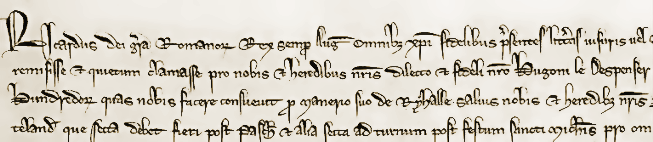 Ricardus dei gr̄a Romanoꝝ Rex semꝑ Aug̃ Omnibꝫ xp̄i fidelibus p̃sentes litt̃as inspuris uel
remisisse & quietum clamasse pro nobis & heredibus nr̄is dilecto & fideli nr̄o Hugoni le Despenser
Hundredoꝝ quas nobis facere consueuit ꝑ manerio suo de Ryhalle saluis nobis & heredibꝫ nr̄is
teland̃ que secta debet fieri post Pasch̃ & alia secta ad turnum post festum sancti mich̃is pro om